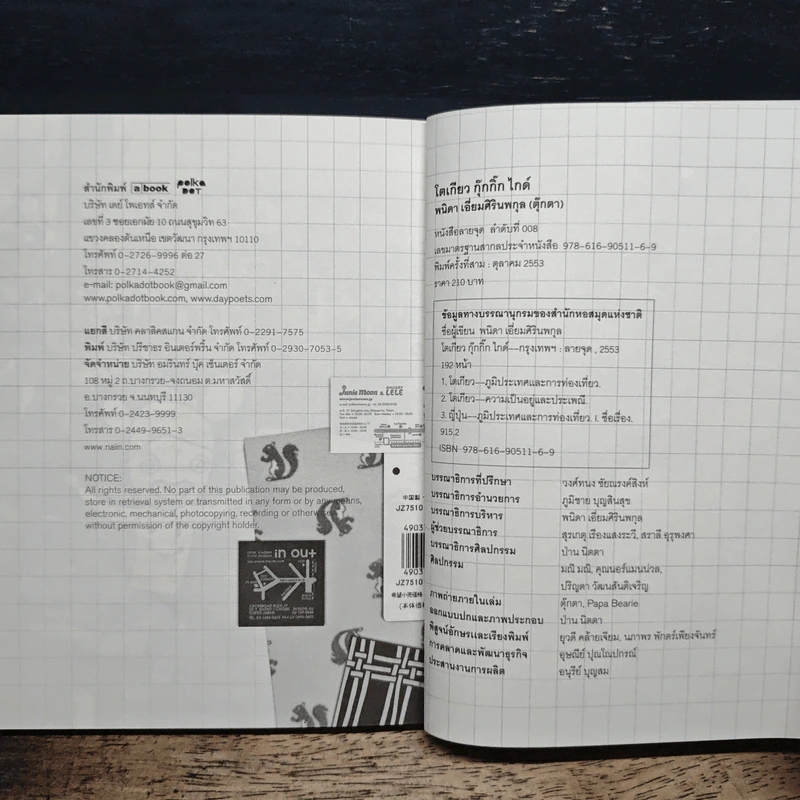 สำนักพิมพ์ a book polka DOT
บริษัท เดย์ โพเอทส์ จำกัด
เลขที่ 3 ซอยเอกมัย 10 ถนนสุขุมวิท 63
แขวงคลองตันเหนือ เขตวัฒนา กรุงเทพฯ 10110
โทรศัพท์ 0-2726-9996 ต่อ 27
โทรสาร 0-2714-4252
e-mail: polkadotbook@gmail.com
www.polkadotbook.com, www.daypoets.com
แยกสี บริษัท คลาสิคสแกน จำกัด โทรศัพท์ 0-2291-7575
พิมพ์ บริษัท ปรีชาธร อินเตอร์พริ้น จำกัด โทรศัพท์ 0-2930-7053-5
จัดจำหน่าย บริษัท อมรินทร์ บุ๊ค เซ็นเตอร์ จำกัด
108 หมู่ 2 ถ.บางกรวย-จงถนอม ต.มหาสวัสดิ์
อ.บางกรวย จ.นนทบุรี 11130
โทรศัพท์ 0-2423-9999
โทรสาร 0-2449-9651-3
www.naiin.com
NOTICE:
All rights reserved. No part of this publication may be produced,
store in retrieval system or transmitted in any form or by any means,
electronic, mechanical, photocopying, recording or otherwise
without permission of the copyright holder.
Janie Moon & LELE
中国製
JZ7510
4903
4903
JZ7510
希望小売価格
(本体価
in out
โตเกียว กุ๊กกิ๊ก ไกด์
พนิดา เอี่ยมศิรินพกุล (ตุ๊กตา)
หนังสือลายจุด ลำดับที่ 008
เลขมาตรฐานสากลประจำหนังสือ 978-616-90511-6-9
พิมพ์ครั้งที่สาม : ตุลาคม 2553
ราคา 210 บาท
ข้อมูลทางบรรณานุกรมของสำนักหอสมุดแห่งชาติ
ชื่อผู้เขียน พนิดา เอี่ยมศิรินพกุล
โตเกียว กุ๊กกิ๊ก ไกด์—กรุงเทพฯ : ลายจุด, 2553
192 หน้า
1. โตเกียว—ภูมิประเทศและการท่องเที่ยว.
2. โตเกียว—ความเป็นอยู่และประเพณี.
3. ญี่ปุ่น—ภูมิประเทศและการท่องเที่ยว. I. ชื่อเรื่อง.
915.2
ISBN 978-616-90511-6-9
บรรณาธิการที่ปรึกษา วงศ์ทนง ชัยณรงค์สิงห์
บรรณาธิการอำนวยการ ภูมิชาย บุญสินสุข
บรรณาธิการบริหาร พนิดา เอี่ยมศิรินพกุล
ผู้ช่วยบรรณาธิการ สุรเกตุ เรืองแสงระวี, สราลี อุรุพงศา
บรรณาธิการศิลปกรรม ป่าน นิตตา
ศิลปกรรม มณิ มณิ, คุณนอร์แมนน่วล,
ปริญดา วัฒนสันติเจริญ
ภาพถ่ายภายในเล่ม ตุ๊กตา, Papa Bearie
ออกแบบปกและภาพประกอบ ป่าน นิตตา
พิสูจน์อักษรและเรียงพิมพ์ ยุวดี คล้ายเจียม, นภาพร พักตร์เพียงจันทร์
การตลาดและพัฒนาธุรกิจ อุษณีย์ ปุณโณปกรณ์
ประสานงานการผลิต อนุรีย์ บุญสม